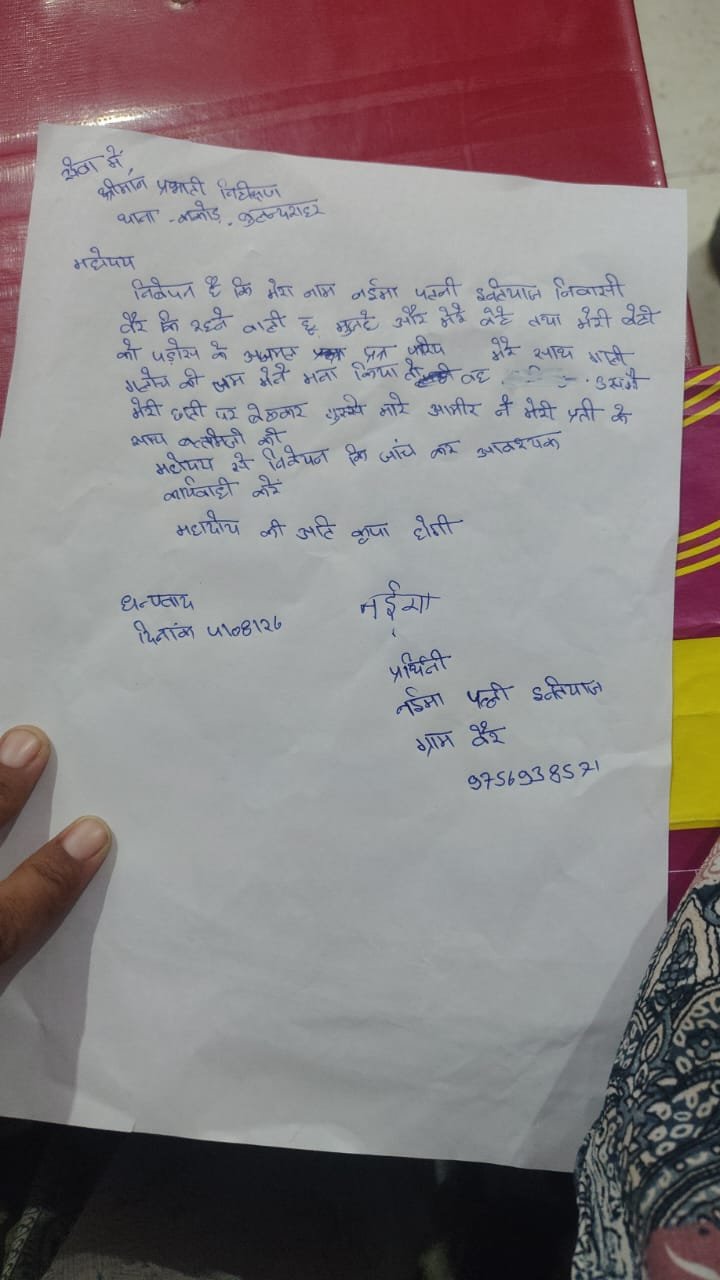 सेवा में,
श्रीमान प्रभारी निरीक्षण
थाना - ककोड़, बुलन्दशहर
महोदय
निवेदन है कि मेरा नाम नईमा पत्नी इम्तियाज निवासी
वैर कि रहने वाली हू मुझे और मेरे बेटे तथा मेरी बेटी
को पड़ोस के पुत्र मेरे साथ गाली
गलोच की जब मेने मना किया तो वह उसने
मेरी छाती पर बैठकर घुस्से मारे आमीर ने मेरी पुत्री के
साथ बत्तमीजी की
महोदय से निवेदन कि जांच कर आवश्यक
कार्यवाही करें
महोदय की अति कृपा होगी
धन्यवाद
दिनांक 4/08/26
नईमा
प्रर्थिनी
नईमा पत्नी इम्तियाज
ग्राम वैर
9756938571